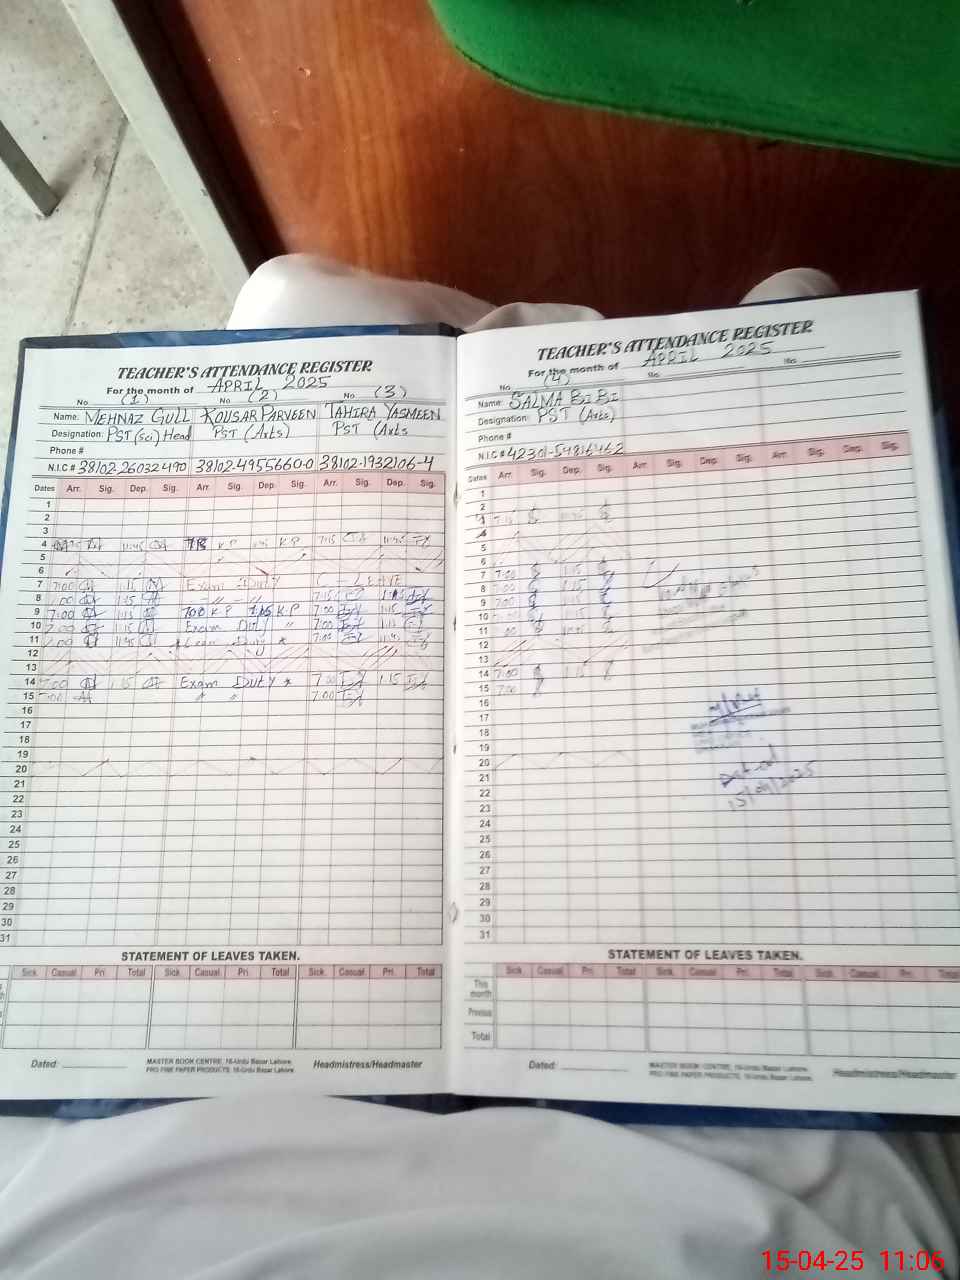 TEACHER'S ATTENDANCE REGISTER
For the month of APRIL 2025
No (1) No (2) No (3)
Name: MEHNAZ GULL KOUSAR PARVEEN TAHIRA YASMEEN
Designation: PST (Sci) Head PST (Arts) PST (Arts
Phone #
N.I.C # 38102-26032490 38102-4955660-0 38102-1932106-4
Dates Arr. Sig. Dep. Sig. Arr. Sig. Dep. Sig. Arr. Sig. Dep. Sig.
1
2
3
4 11:45 K.P K.P 7:15 11:45
5
6
7 7:00 1:15 Exam Duty C - LEAVE
8 7:00 1:15 7:15 1:15
9 7:00 1:15 7:00 K.P 1:15 K.P 7:00 1:15
10 7:00 1:15 Exam Duty " 7:00 1:15
11 7:00 11:45 Exam Duty 7:00 11:45
12
13
14 7:00 1:15 Exam Duty 7:00 1:15
15 7:00 " " 7:00
16
17
18
19
20
21
22
23
24
25
26
27
28
29
30
31
STATEMENT OF LEAVES TAKEN.
Sick. Casual. Pri. Total Sick. Casual. Pri. Total Sick. Casual. Pri. Total
Dated:
MASTER BOOK CENTRE, 16-Urdu Bazar Lahore.
PRO FINE PAPER PRODUCTS, 16-Urdu Bazar Lahore.
Headmistress/Headmaster
TEACHER'S ATTENDANCE REGISTER
For the month of APRIL 2025
No. (4) No. No.
Name: SALMA BI BI
Designation: PST (Arts)
Phone #
N.I.C # 42301-54816462
Dates Arr. Sig. Dep. Sig. Arr. Sig. Dep. Sig. Arr. Sig. Dep. Sig.
1
2
3 7:15 11:45
4
5
6
7 7:00 1:15
8 7:00 1:15
9 7:00 1:15
10 7:00 1:15
11 7:00 11:45
12
13
14 7:00 1:15
15 7:00
16
17
18
19
20
21
22
23
24
25
26
27
28
29
30
31
Dated
15/04/2025
STATEMENT OF LEAVES TAKEN.
Sick. Casual. Pri. Total Sick. Casual. Pri. Total Sick. Casual. Pri. Total
This month
Previous
Total
Dated:
MASTER BOOK CENTRE, 16-Urdu Bazar Lahore.
PRO FINE PAPER PRODUCTS, 16-Urdu Bazar Lahore.
Headmistress/Headmaster
15-04-25 11:06